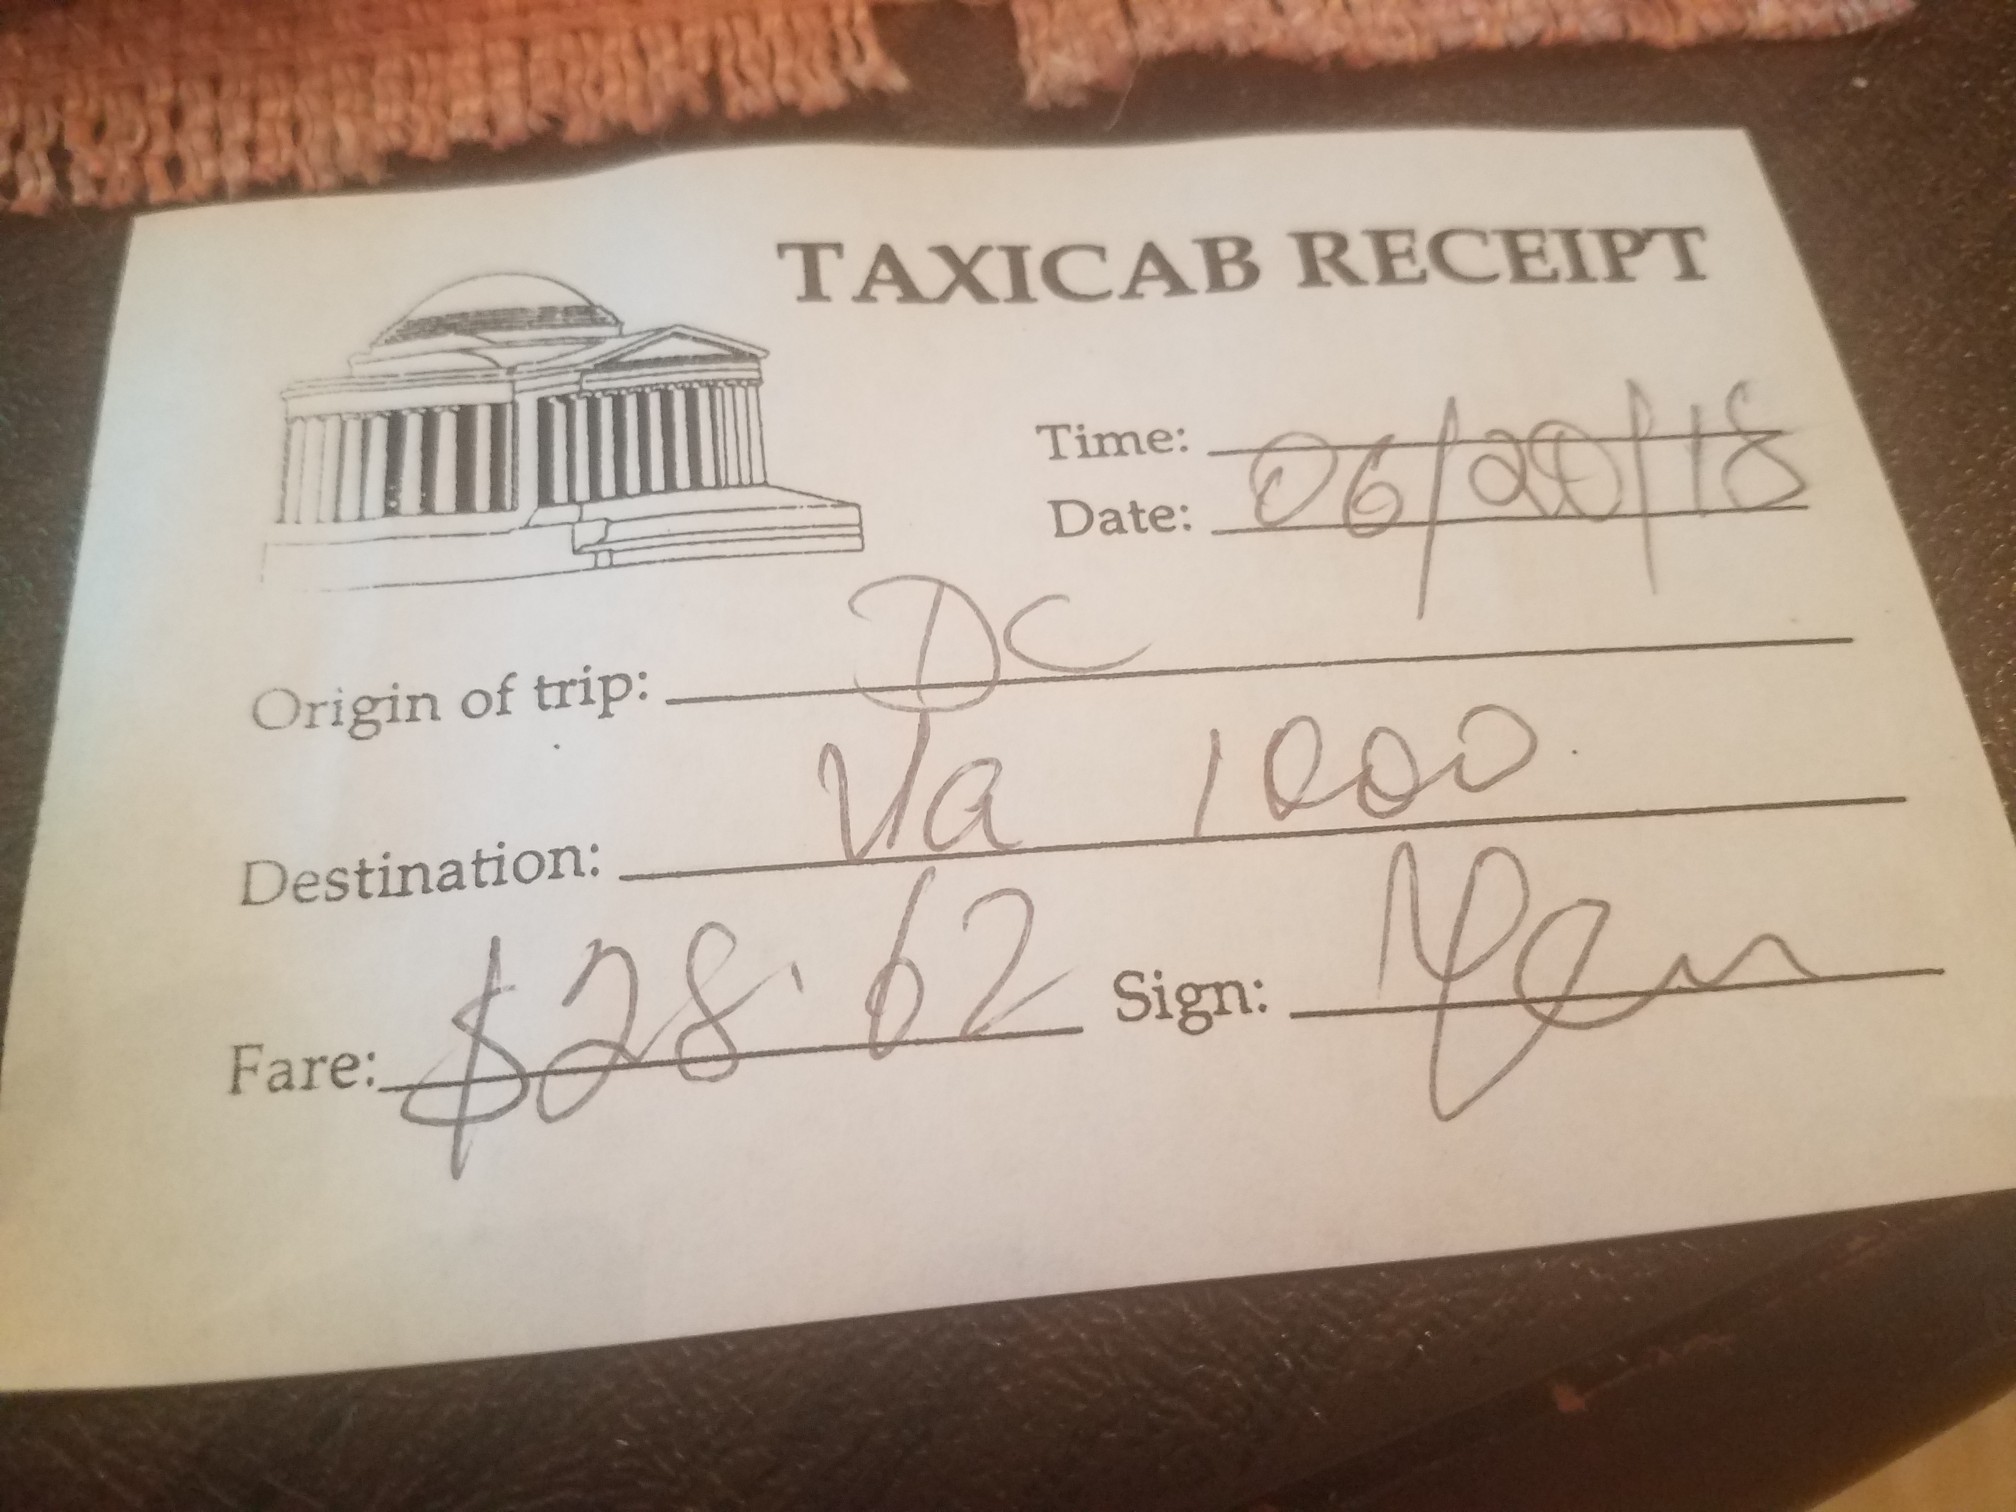 TAXICAB RECEIPT
Time:
Date: 06/20/18
Origin of trip: DC
Destination: Va 1000
Fare: $28.62 Sign: